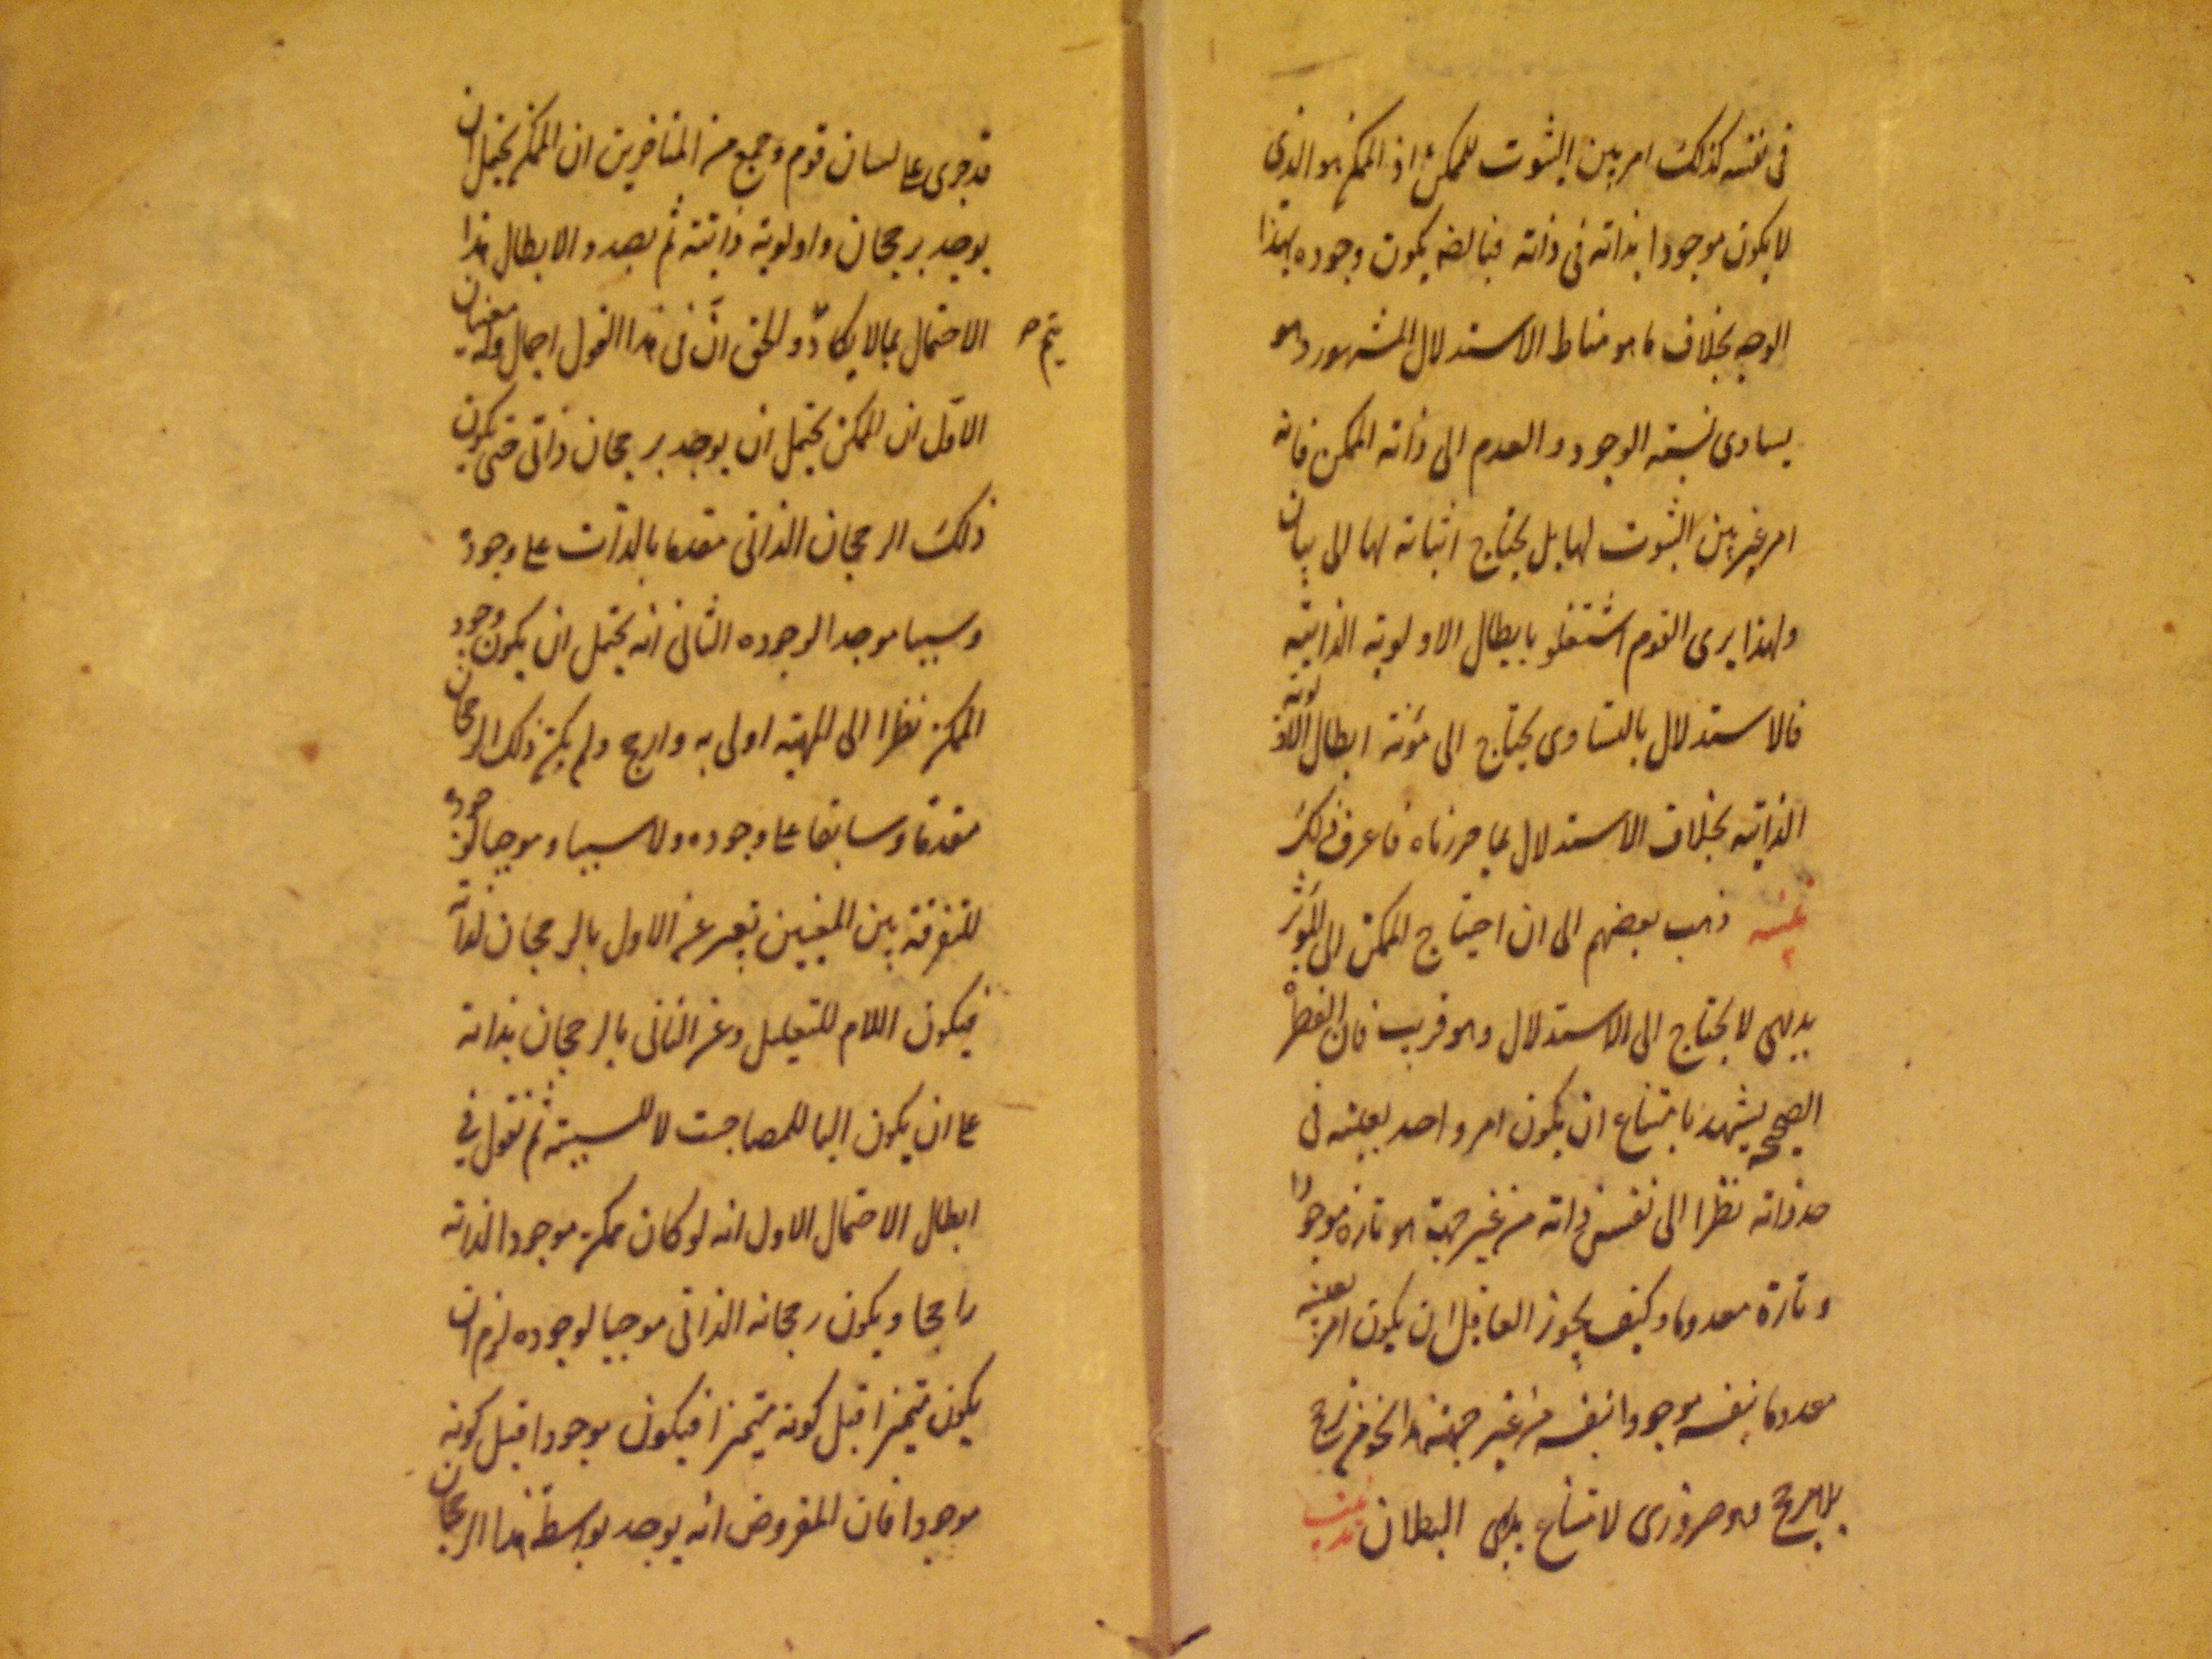 فى نفسه كذلك امر بين الثبوت للممكن اذ الممكن هو الذى
لا يكون موجودا بذاته فى ذاته فبالضه يكون وجوده بهذا
الوجه بخلاف ما هو مناط الاستدلال المشهور وهو
تساوى نسبته الوجود والعدم الى ذاته الممكن فانه
امر غير بين الثبوت لها بل يحتاج اثباته لها الى بيان
ولهذا يرى القوم اشتغلو بابطال الاولوية الذاتيه
فالاستدلال بالتساوى يحتاج الى مؤنة ابطال الاولوية
الذاتيه بخلاف الاستدلال بما حررناه فاعرف ذلك
ذهب بعضهم الى ان احتياج الممكن الى المؤثر
بديهى لا يحتاج الى الاستدلال وهو قريب فان الفطرة
الصحيحه يشهد بامتناع ان يكون امر واحد بعينه فى
حد ذاته نظرا الى نفس ذاته من غير جهة هو تارة موجودا
وتارة معدوما وكيف يجوز العاقل ان يكون امر بعينه
معدوما بنفسه موجودا بنفسه من غير جهة
بلا مرجح وهو ضرورى لامتناع بديهى البطلان تذنيب
قد جرى على لسان قوم وجمع من المتاخرين ان الممكن يحتمل ان
يوجد برجحان واولوية ذاتية ثم بصدد الابطال هذا
الاحتمال بما لا يكاد يتم والحق انّ فى هذا القول اجمال وله معنيان
الاوّل ان الممكن يحتمل ان يوجد برجحان ذاتى حتى يكون
ذلك الرجحان الذاتى مقدما بالذات على وجوده
وسببا موجدا لوجوده الثانى انه يحتمل ان يكون وجود
الممكن نظرا الى المهية اولى به وارجح ولم يكن ذلك الرجحان
مقدما وسابقا على وجوده ولا سببا وموجبا لوجوده
للتفرقة بين المعنيين يعبر عن الاول بالرجحان لذاته
فيكون اللام للتعليل وعن الثانى بالرجحان بذاته
على ان يكون البا للمصاحبت لا للسببية ثم نقول فى
ابطال الاحتمال الاول انه لو كان ممكن موجودا لذاته
راجحا ويكون رجحانه الذاتى موجبا لوجوده لزم ان
يكون متميزا قبل كونه متميزا فيكون موجودا قبل كونه
موجودا فان المفروض انه يوجد بواسطة هذا الرجحان